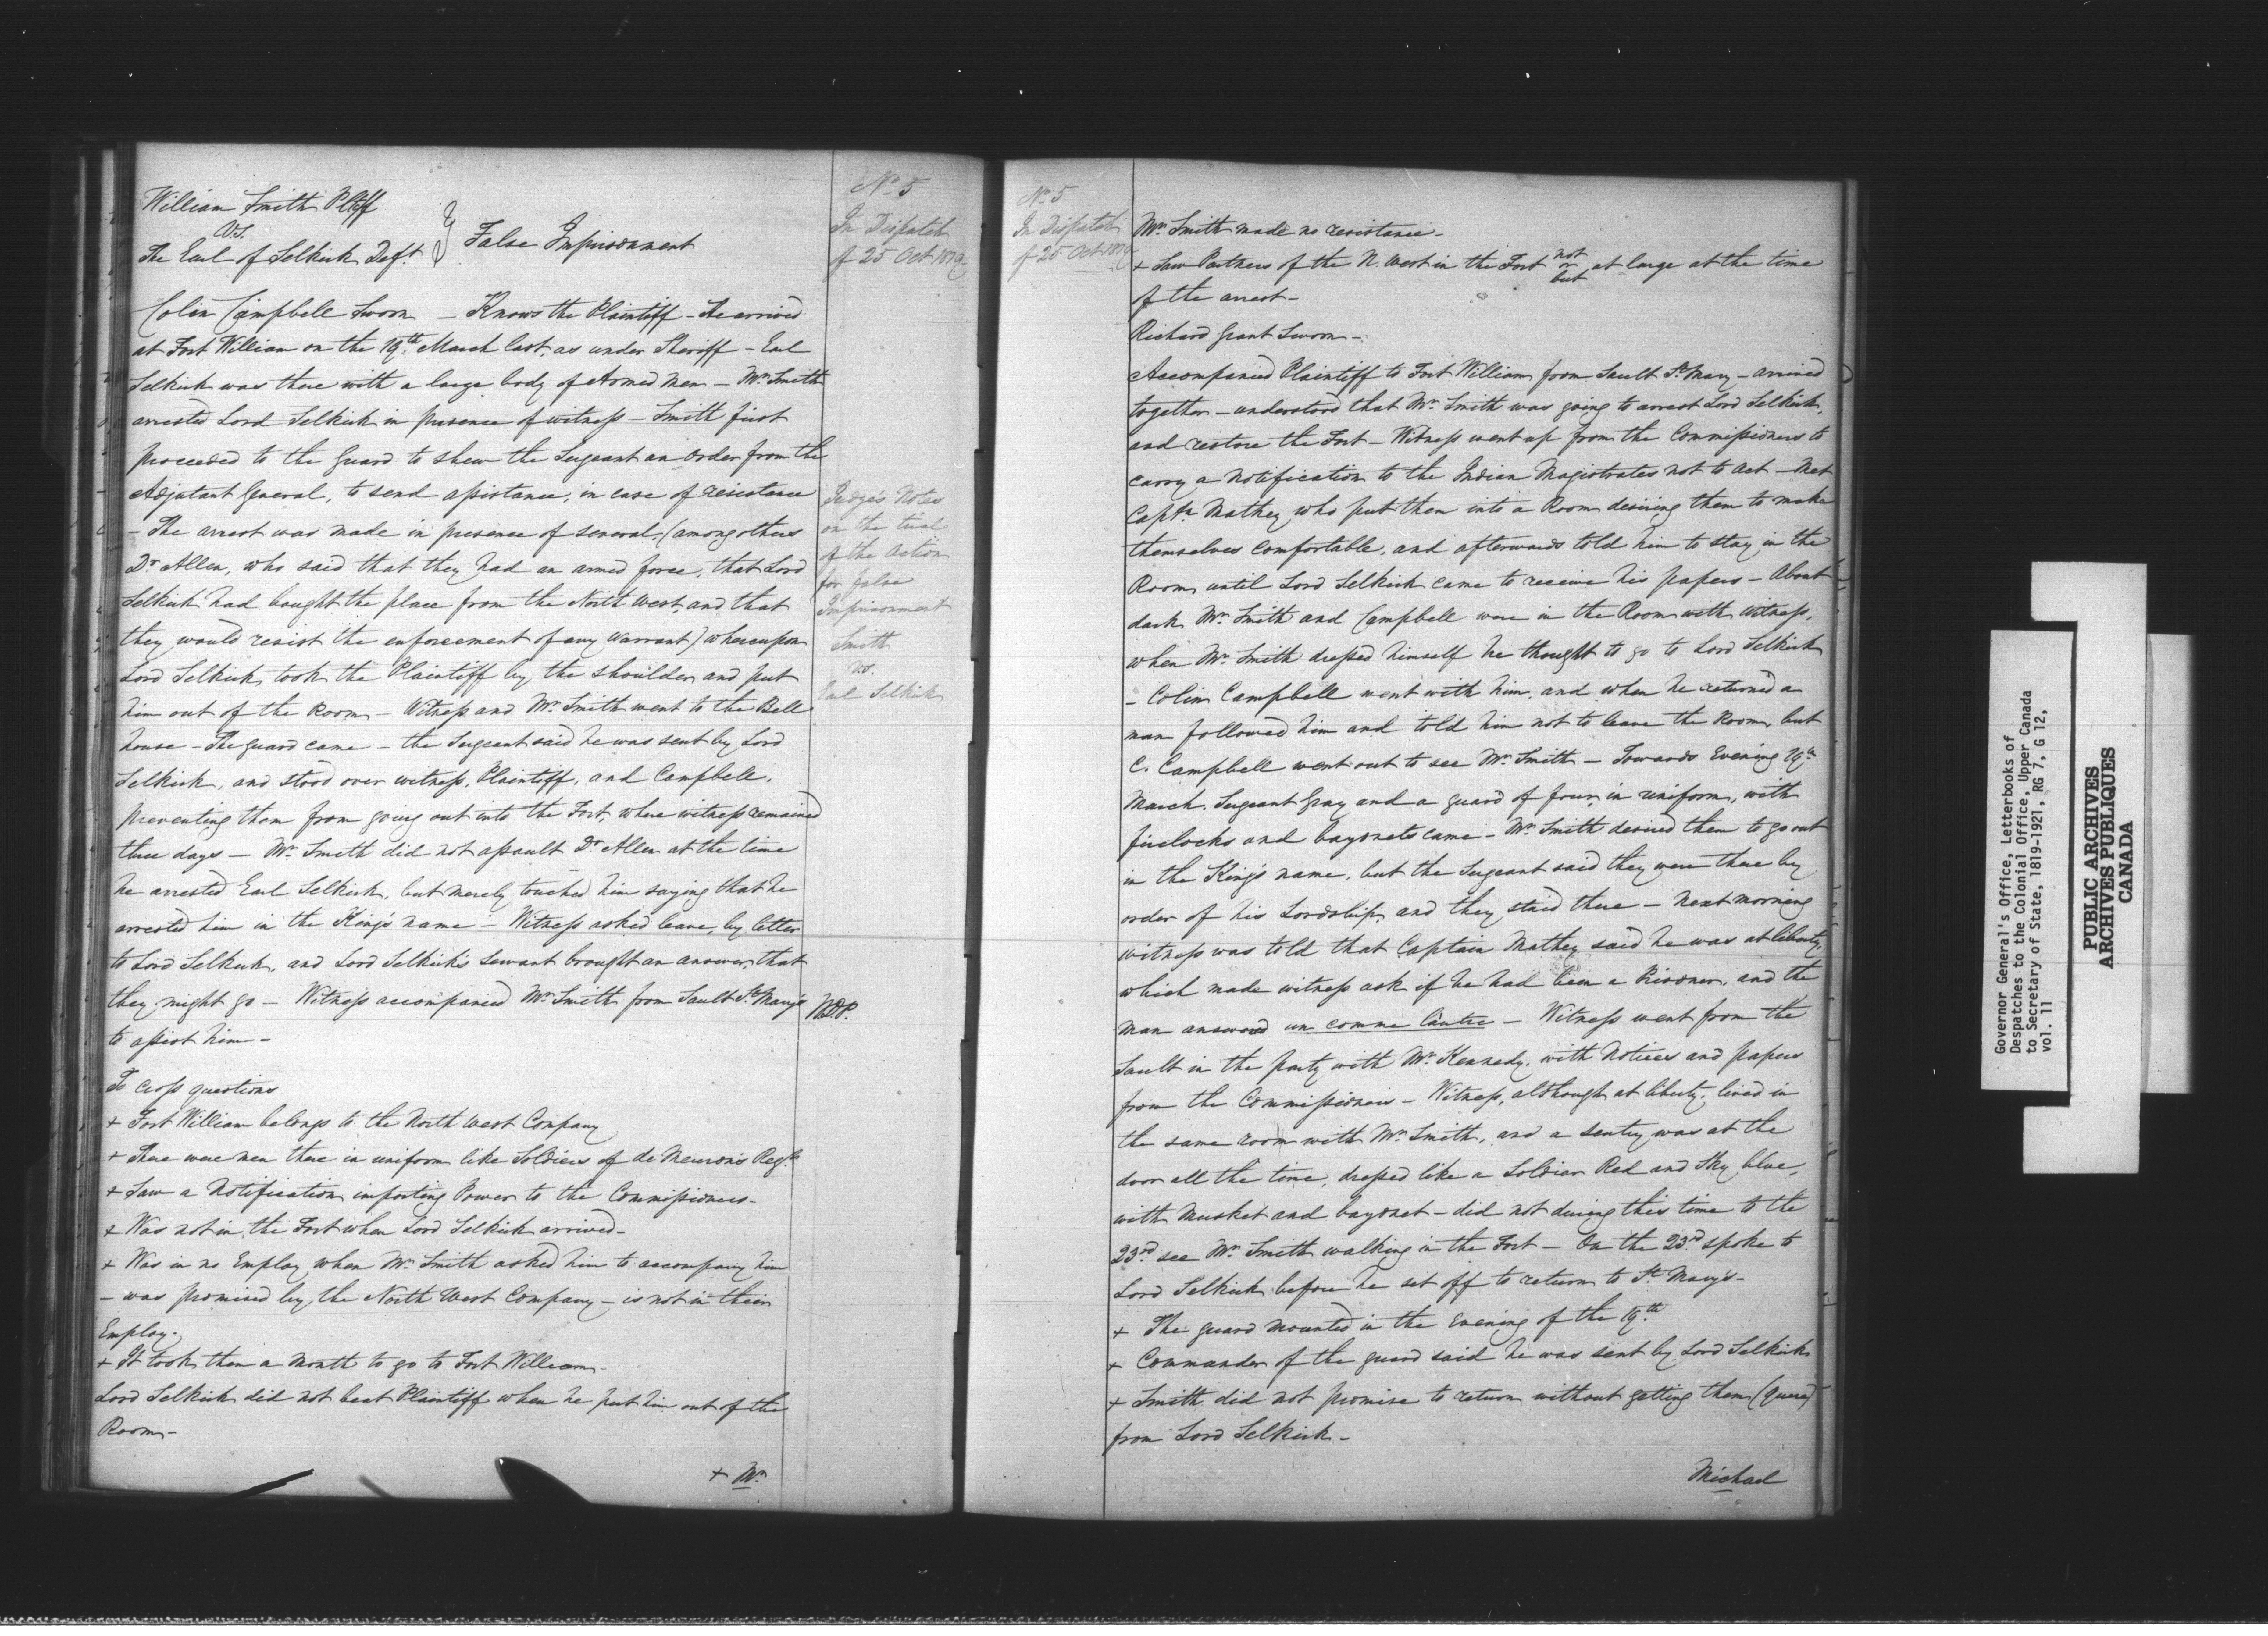 William Smith Pltff
vs.
The Earl of Selkirk Deft. } False Imprisonment
No. 5
In Dispatch
of 25 Oct 1819
Colin Campbell Sworn – Knows the Plaintiff – He arrived
at Fort William on the 19th March last, as under Sheriff – Earl
Selkirk was there with a large body of Armed Men – Mr. Smith
arrested Lord Selkirk in presence of witness – Smith first
proceeded to the Guard to shew the Sergeant an Order from the
Adjutant General, to send assistance, in case of resistance
– The arrest was made in presence of several, (among others
Dr. Allen, who said that they had an armed force, that Lord
Selkirk had bought the place from the North West, and that
they would resist the enforcement of any Warrant) whereupon
Lord Selkirk took the Plaintiff by the shoulder and put
him out of the Room – Witness and Mr. Smith went to the Bell
house – The guard came – the Sergeant said he was sent by Lord
Selkirk, and stood over witness, Plaintiff, and Campbell,
preventing them from going out into the Fort, where witness remained
three days – Mr. Smith did not assault Dr. Allen at the time
he arrested Earl Selkirk, but merely touched him saying that he
arrested him in the King's name – Witness asked leave, by letter
to Lord Selkirk, and Lord Selkirk's Servant brought an answer, that
they might go – Witness accompanied Mr. Smith from Sault St. Mary's
to assist him –
Judge's Notes
on the trial
of the Action
for false
Imprisonment
Smith
vs.
Earl Selkirk
W.D.P.
To Cross questions
+ Fort William belongs to the North West Company
+ There were men there in uniform like Soldiers of de Meuron's Regt.
+ Saw a Notification imparting Power to the Commissioners –
+ Was not in the Fort when Lord Selkirk arrived –
+ Was in no Employ when Mr. Smith asked him to accompany him
– was promised by the North West Company – is not in their
Employ.
+ It took them a Month to go to Fort William –
Lord Selkirk did not beat Plaintiff when he put him out of the
Room –
+ Mr.
No. 5
In Dispatch
of 25 Oct 1819
Mr. Smith made no resistance –
+ Saw Partners of the N. West in the Fort not or but at large at the time
of the arrest –
Richard Grant Sworn –
Accompanied Plaintiff to Fort William from Sault St. Mary – arrived
together – understood that Mr. Smith was going to arrest Lord Selkirk,
and restore the Fort – Witness went up from the Commissioners to
carry a Notification to the Indian Magistrates not to act – Met
Captn. Mathey who put them into a Room desiring them to make
themselves comfortable, and afterwards told him to stay in the
Room until Lord Selkirk came to receive his papers – About
dark Mr. Smith and Campbell were in the Room with witness,
when Mr. Smith dressed himself he thought to go to Lord Selkirk
– Colin Campbell went with him, and when he returned a
man followed him and told him not to leave the Room, but
C. Campbell went out to see Mr. Smith – Towards Evening 19th
March, Sergeant Gray and a guard of four, in uniform, with
firelocks and bayonets came – Mr. Smith desired them to go out
in the King's name, but the Sergeant said they were there by
order of his Lordship, and they staid there – Next morning
witness was told that Captain Mathey said he was at liberty,
which made witness ask if he had been a Prisoner, and the
man answered un comme l'autre – Witness went from the
Sault in the party with Mr. Kennedy, with Notices and papers
from the Commissioners – Witness, although at liberty, lived in
the same room with Mr. Smith, and a Sentry was at the
door all the time, dressed like a Soldier Red and Sky blue,
with Musket and bayonet – did not during this time to the
23rd see Mr. Smith walking in the Fort – On the 23rd spoke to
Lord Selkirk before he set off to return to St. Mary's –
+ The guard mounted in the Evening of the 19th
+ Commander of the guard said he was sent by Lord Selkirk
+ Smith did not promise to return without getting them (quere)
from Lord Selkirk –
Michael
Governor General's Office, Letterbooks of
Despatches to the Colonial Office, Upper Canada
to Secretary of State, 1819-1921, RG 7, G 12,
vol. 11
PUBLIC ARCHIVES
ARCHIVES PUBLIQUES
CANADA